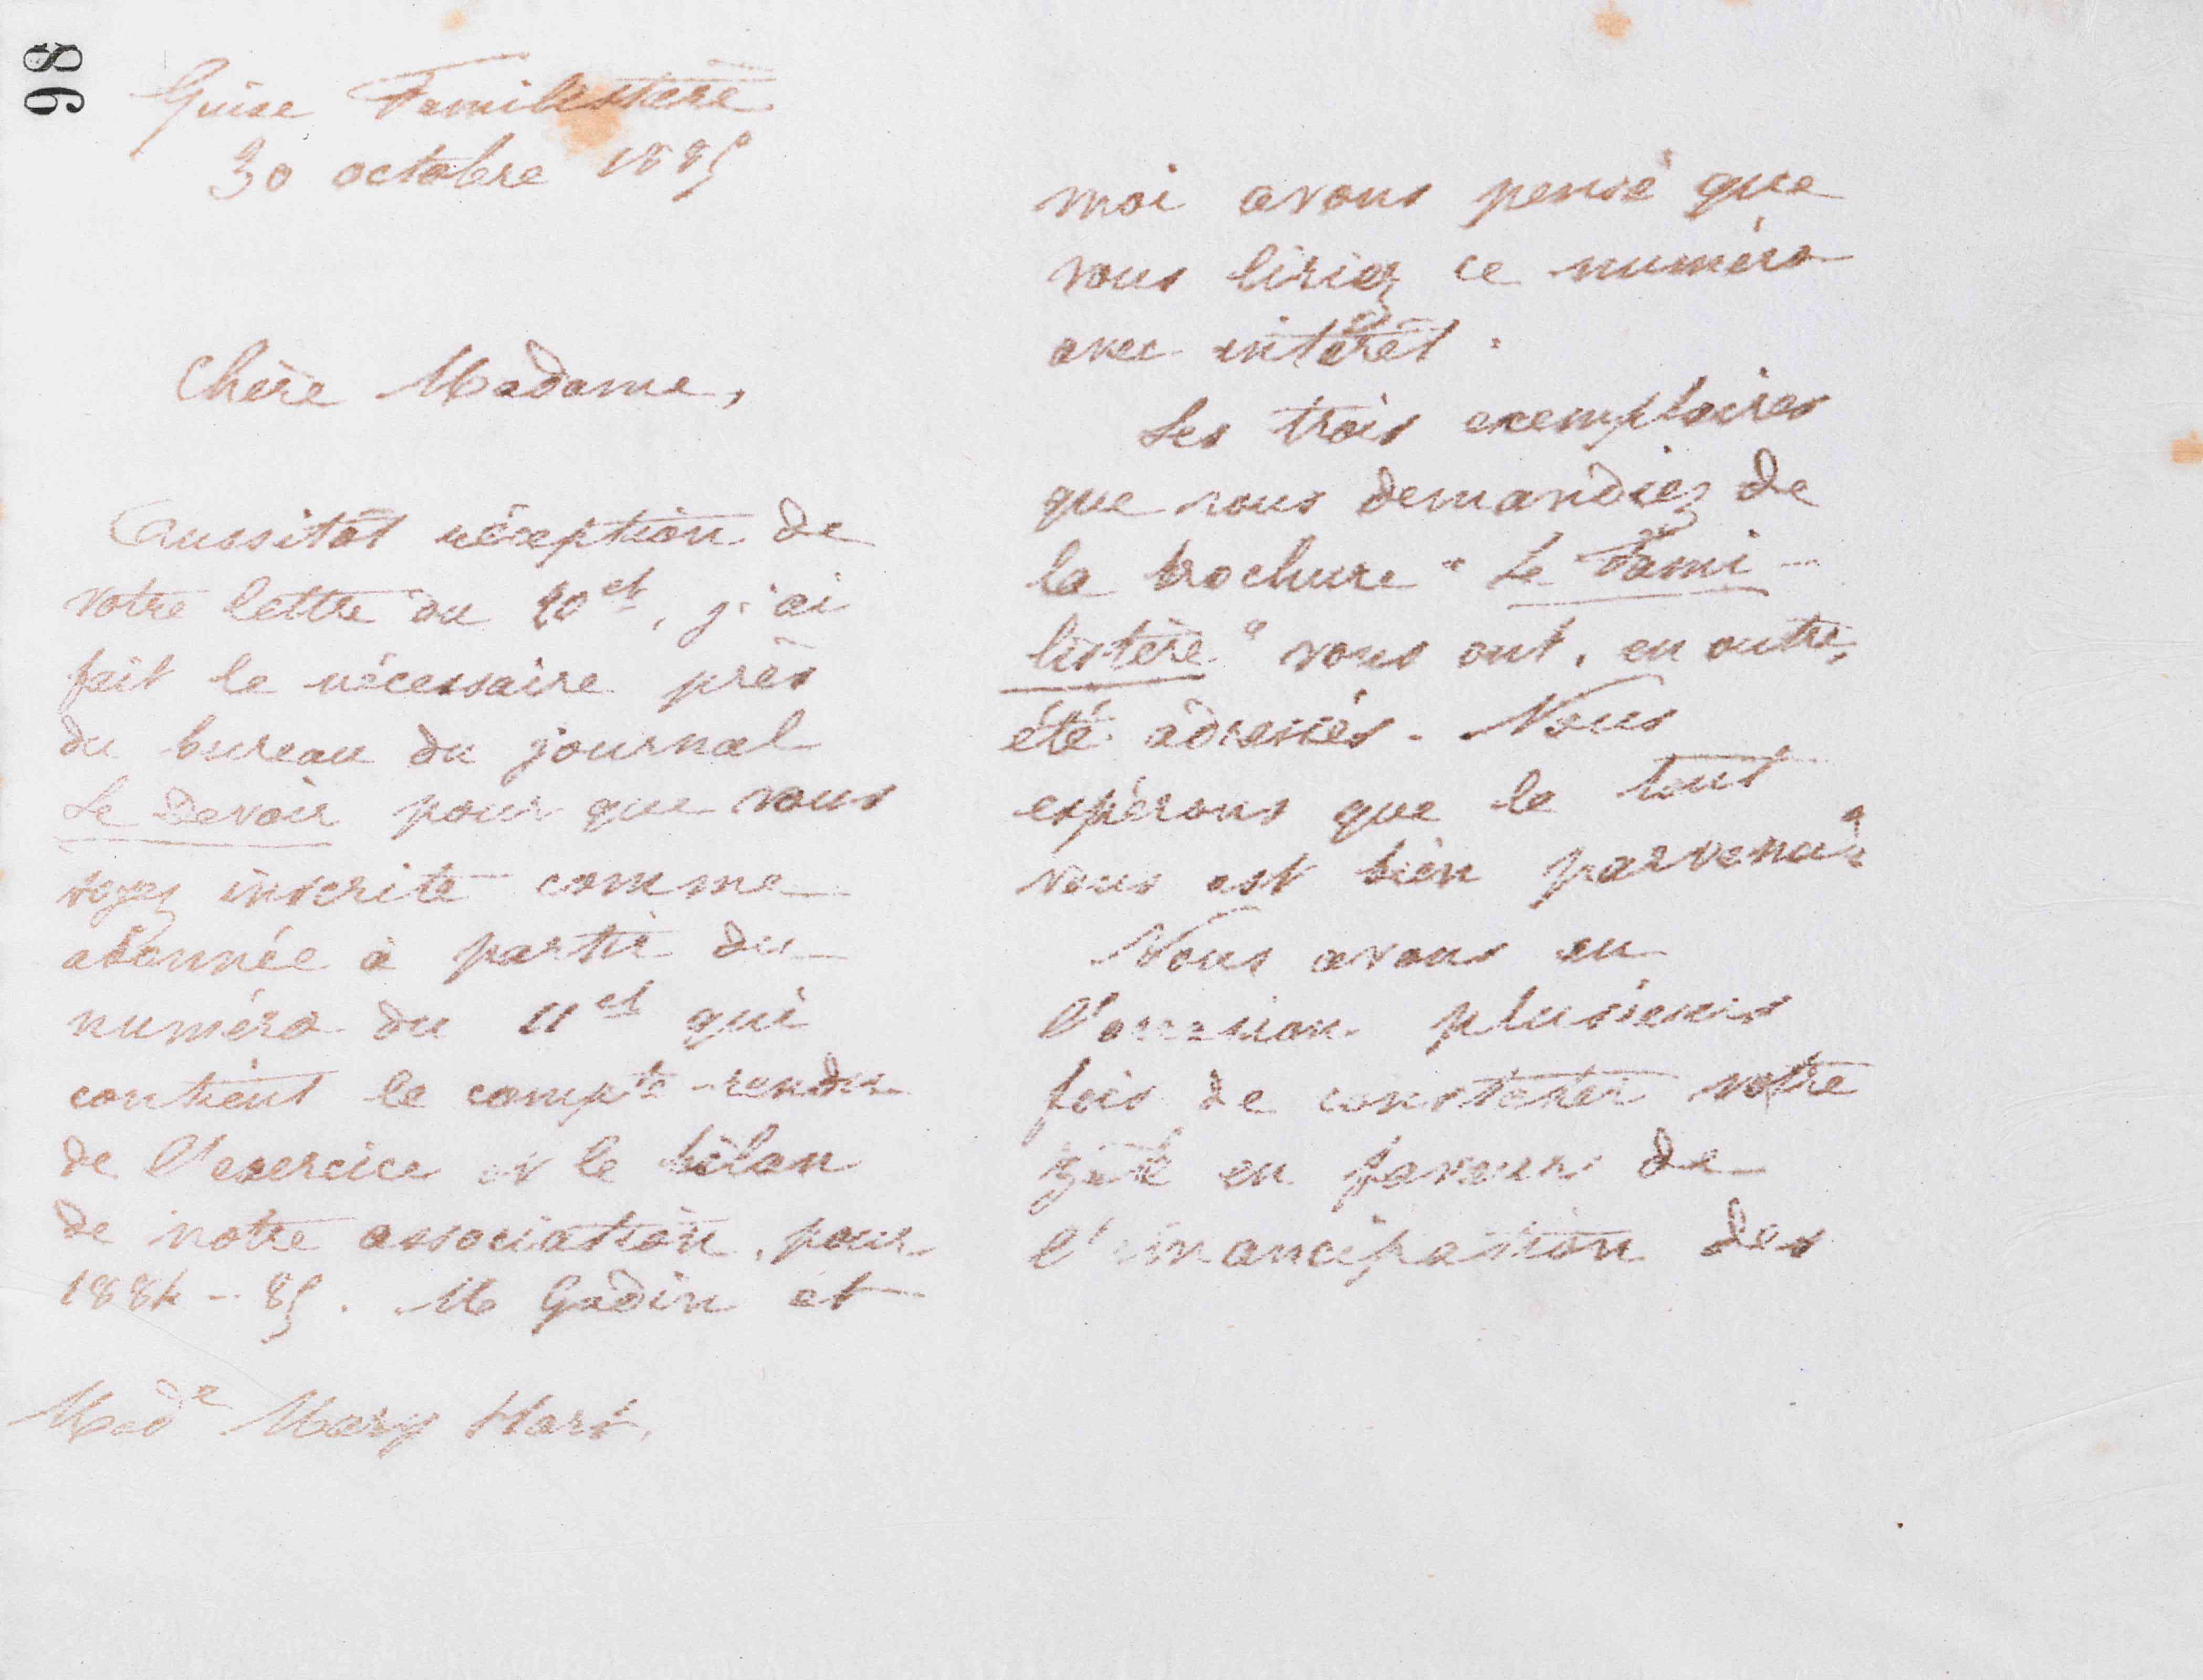 98
Guise Familistère
30 octobre 1885
Chère Madame,
Aussitôt réception de
votre lettre du 20 ct, j'ai
fait le nécessaire près
du bureau du journal
Le Devoir pour que vous
soyez inscrite comme
abonnée à partir du
numéro du 11 ct qui
contient le compte-rendu
de l'exercice et le bilan
de notre association, pour
1884-85. M Godin et
Made Mary Hart,
moi avons pensé que
vous liriez ce numéro
avec intérêt.
Les trois exemplaires
que vous demandiez de
la brochure "Le Fami-
listère" vous ont, en outre,
été adressés. Nous
espérons que le tout
vous est bien parvenu.
Nous avons eu
l'occasion plusieurs
fois de constater votre
zèle en faveur de
l'émancipation des